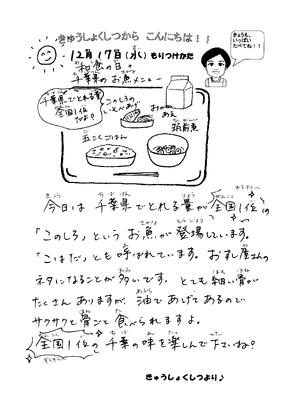 きゅうしょくしつから こんにちは！！
きょうも、
いっぱい
たべてね！！
12月17日(水)もりつけかた
和食の日
千葉県のお魚メニュー
千葉県でとれる量
全国1位
だよ♪
このしろの
おかか
あえ
筑前煮
五こくごはん
今日は 千葉県でとれる量が全国1位の
「このしろ」という お魚が登場しています。
「こはだ」とも呼ばれています。おすし屋さんの
ネタになることが 多いです。とても細い骨が
たくさん ありますが、油であげてあるので
サクサクと骨ごと食べられますよ。
全国1位の千葉の味を楽しんで下さいね♪
きゅうしょくしつより♪